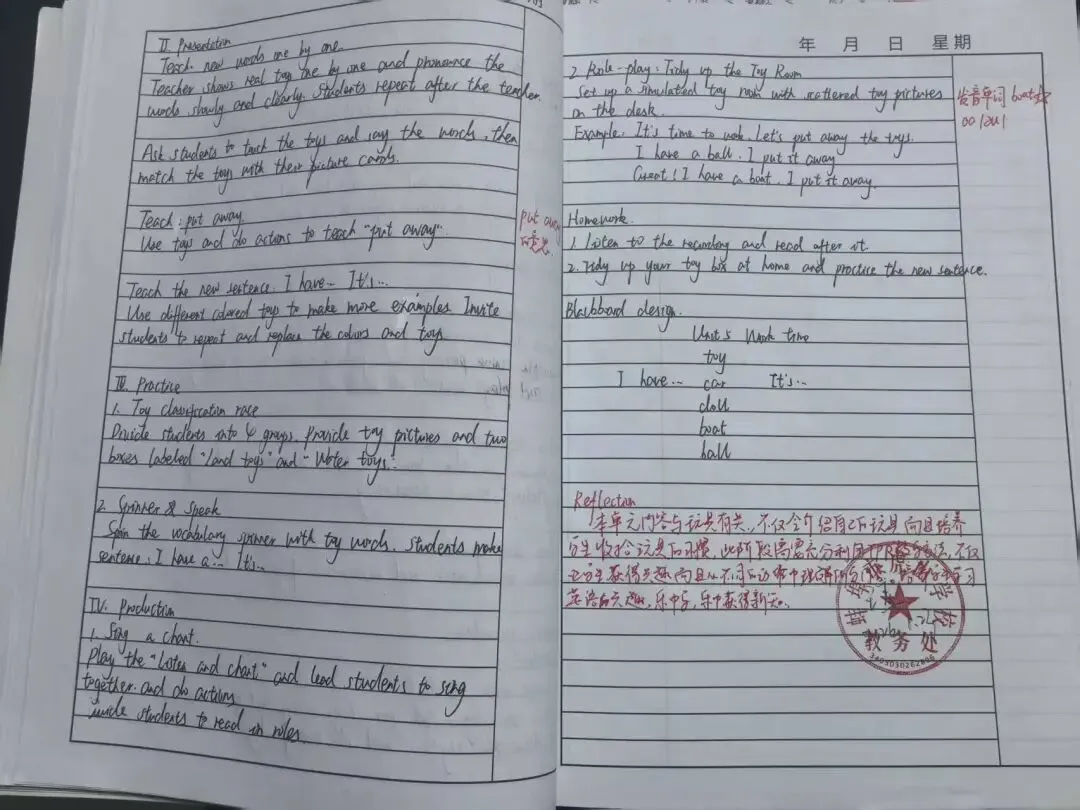 II. Presentation
Teach: new words one by one.
Teacher shows real toys one by one and pronounce the
words slowly and clearly. Students repeat after the teacher.
Ask students to touch the toys and say the words, then
match the toys with their picture cards.
Teach: put away.
Use toys and do actions to teach "put away".
put away
的意思
Teach the new sentence: I have... It's...
Use different colored toys to make more examples Invite
students to repeat and replace the colors and toys
III. Practice
1. Toy classification race
Divide students into 4 groups. Provide toy pictures and two
boxes labeled "Land toys" and "Water toys".
2. Spinner & Speak
Spin the vocabulary spinner with toy words. Students make
sentence: I have a... It's...
IV. Production
1. Sing a chant.
Play the "Listen and chant" and lead students to sing
together and do actions
Guide students to read in roles.
年 月 日 星期
2 Role-play: Tidy up the Toy Room
Set up a simulated toy room with scattered toy pictures
on the desk.
Example: It's time to work. Let's put away the toys.
I have a ball. I put it away
Great! I have a boat. I put it away.
发音单词 boat
oa
Homework.
1. Listen to the recording and read after it.
2. Tidy up your toy box at home and practice the new sentence.
Blackboard design.
Unit 5 Work time
toy
I have... car It's...
doll
boat
ball
Reflection
本单元内容与玩具有关,不仅会介绍自己的玩具而且培养
学生收拾玩具的习惯,此阶段需要充分利用TPR
学生获得乐趣而且从不同的
英语的兴趣,乐中学,乐中获得新知。
学校
教务处
3403030262896